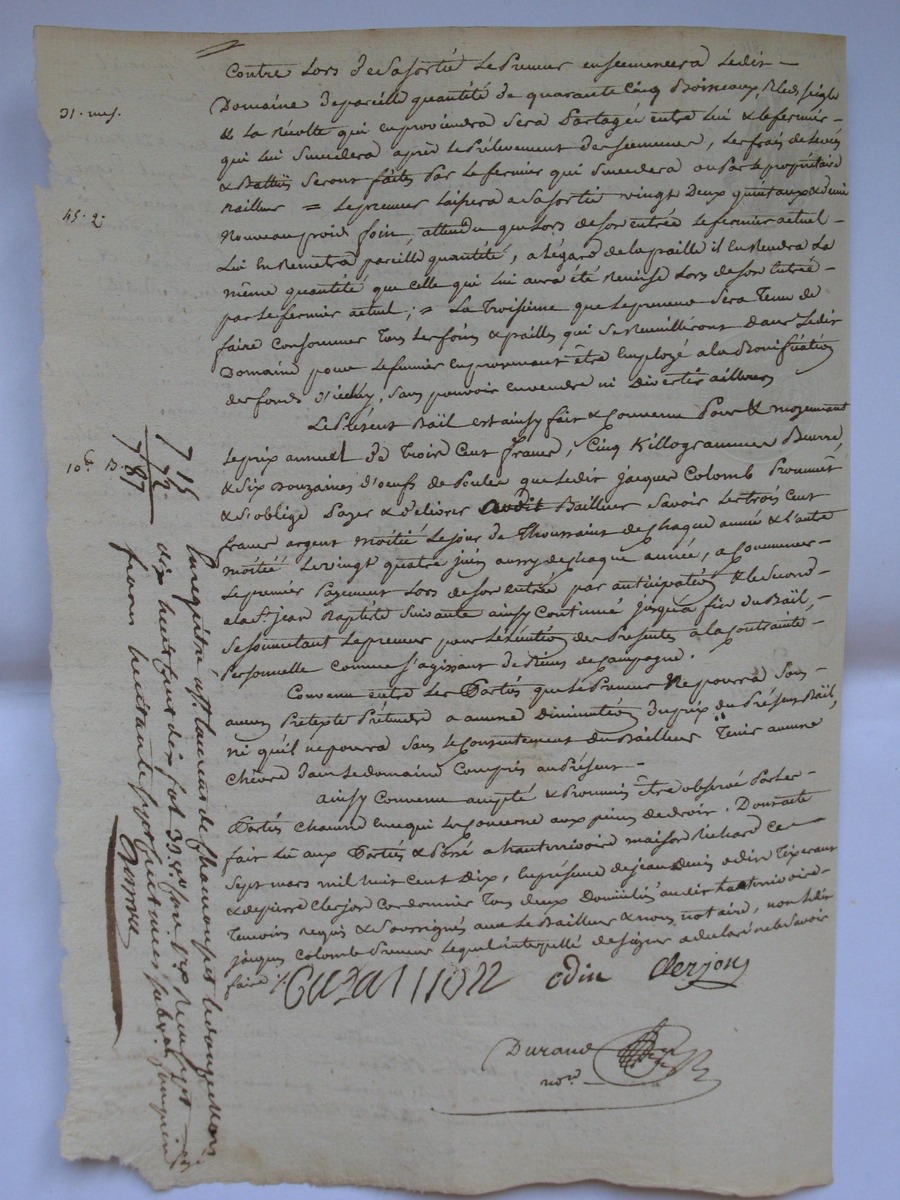 Contre Lors de Sa Sortie Le Preneur ensemencera Ledit
Domaine de pareille quantité de quarante Cinq Boisseaux, Bled Seigle
& La Récolte qui en proviendra Sera Partagée entre Lui & Le fermier
qui Lui Succedera après Le Prélevement des Semences, Les frais de Levées
& Batties Seront faites Par Le fermier qui Succedera ou Par Le propriétaire
Bailleur = Le preneur Laissera a Sa Sortie vingt Deux quintaux & demi
Nouveau poids foin, attendu que Lors de Son entrée Le fermier actuel
Lui En Remetra pareille quantété, a Légard de La paille il En Rendra La
même quantité que Celle qui Lui aura été Remise Lors de Son Entrée
par Le fermier actuel; = La Troisième que Le preneur Sera Tenu de
faire Consommer Tous Les foins & pailles qui Se Recuilleront Dans Ledit
Domaine pour Le fumier En provenant être Employé a La Bonification
des fonds d'icelui, Sans pouvoir en vendre ni divertir ailleurs
Le Présent Bail est ainsy fait & Convenu Pour & moyennant
Le prix annuel De Trois Cent francs, Cinq Killogrammes Beurre,
& Six Douzaines d'oeufs de Poules que Ledit jacques Colomb Prommet
& S'oblige Payer & délivrer audit Bailleur Savoir Les trois Cent
francs argent moitié Le jour de Thoussaint de Chaque année & L'autre
moitié Le vingt quatre juin aussy de Chaque année, a Commencer
Le premier Payement Lors de Son Entrée par anticipation & Le Second
a La St. jean Baptiste Suivante ainsy Continué jusqu'a fin du Bail,
Se Soumetant Le preneur pour L'exécution des Présentes à La Contrainte
Personnelle Comme S'agissant de Biens de Campagne.
Convenu entre Les Parties que Le Preneur Ne pourra Sous
aucun Prétexte Prétendre a aucune Diminution du prix du Présent Bail,
ni qu'il ne pourra Sans Le Consentement du Bailleur Tenir aucune
Chèvre dans Le domaine Compris au Présent
ainsy Convenu accepté & Prommis être observé Par Les
Parties Chacune En ce qui Les Concerne aux peines de droit. Dont acte
fait Lû aux Parties & Passé a hauterivoire maison Richard Ce
Sept mars mil huit Cent Dix, En présence de jean Denis odin Tixerant
& de pierre Clerjon Cordonnier Tous deux Domiciliés audit hauterivoire
Temoins requis & Soussignés avec Le Bailleur & nous notaire, non Ledit
jacques Colomb Preneur Lequel interpellé de Signer a déclaré ne le Savoir
faire
odin Clerjon
Durand
nore.
31. mes.
45. 2.
10 f. B.
7 15
72
7 87
Enregistré a St Laurent de Chamousset